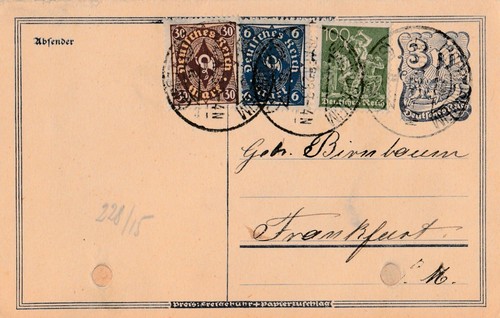 Absender
30 30
Deutsches Reich
Mark
30 30
6 6
Deutsches Reich
Mark
6 6
100
Deutsches Reich
3 M
Deutsches Reich
Gebr. Birnbaum
Frankfurt
a. M.
228/15
Preis: Freigebühr + Papierzuschlag